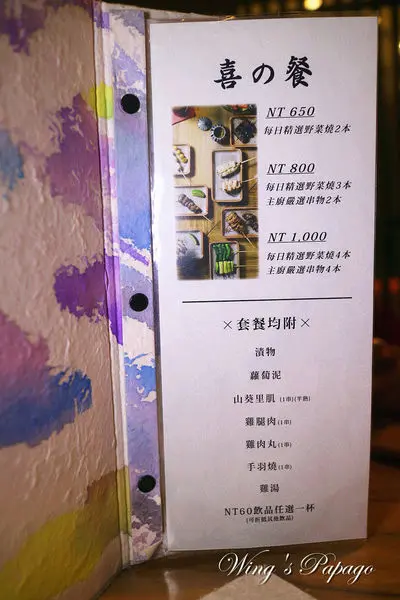 喜の餐
NT 650
每日精選野菜燒2本
NT 800
每日精選野菜燒3本
主廚嚴選串物2本
NT 1,000
每日精選野菜燒4本
主廚嚴選串物4本
×套餐均附×
漬物
蘿蔔泥
山葵里肌 (1串)(半熟)
雞腿肉(1串)
雞肉丸(1串)
手羽燒(1串)
雞湯
NT60飲品任選一杯
(可折抵其他飲品)
Wing's Papago